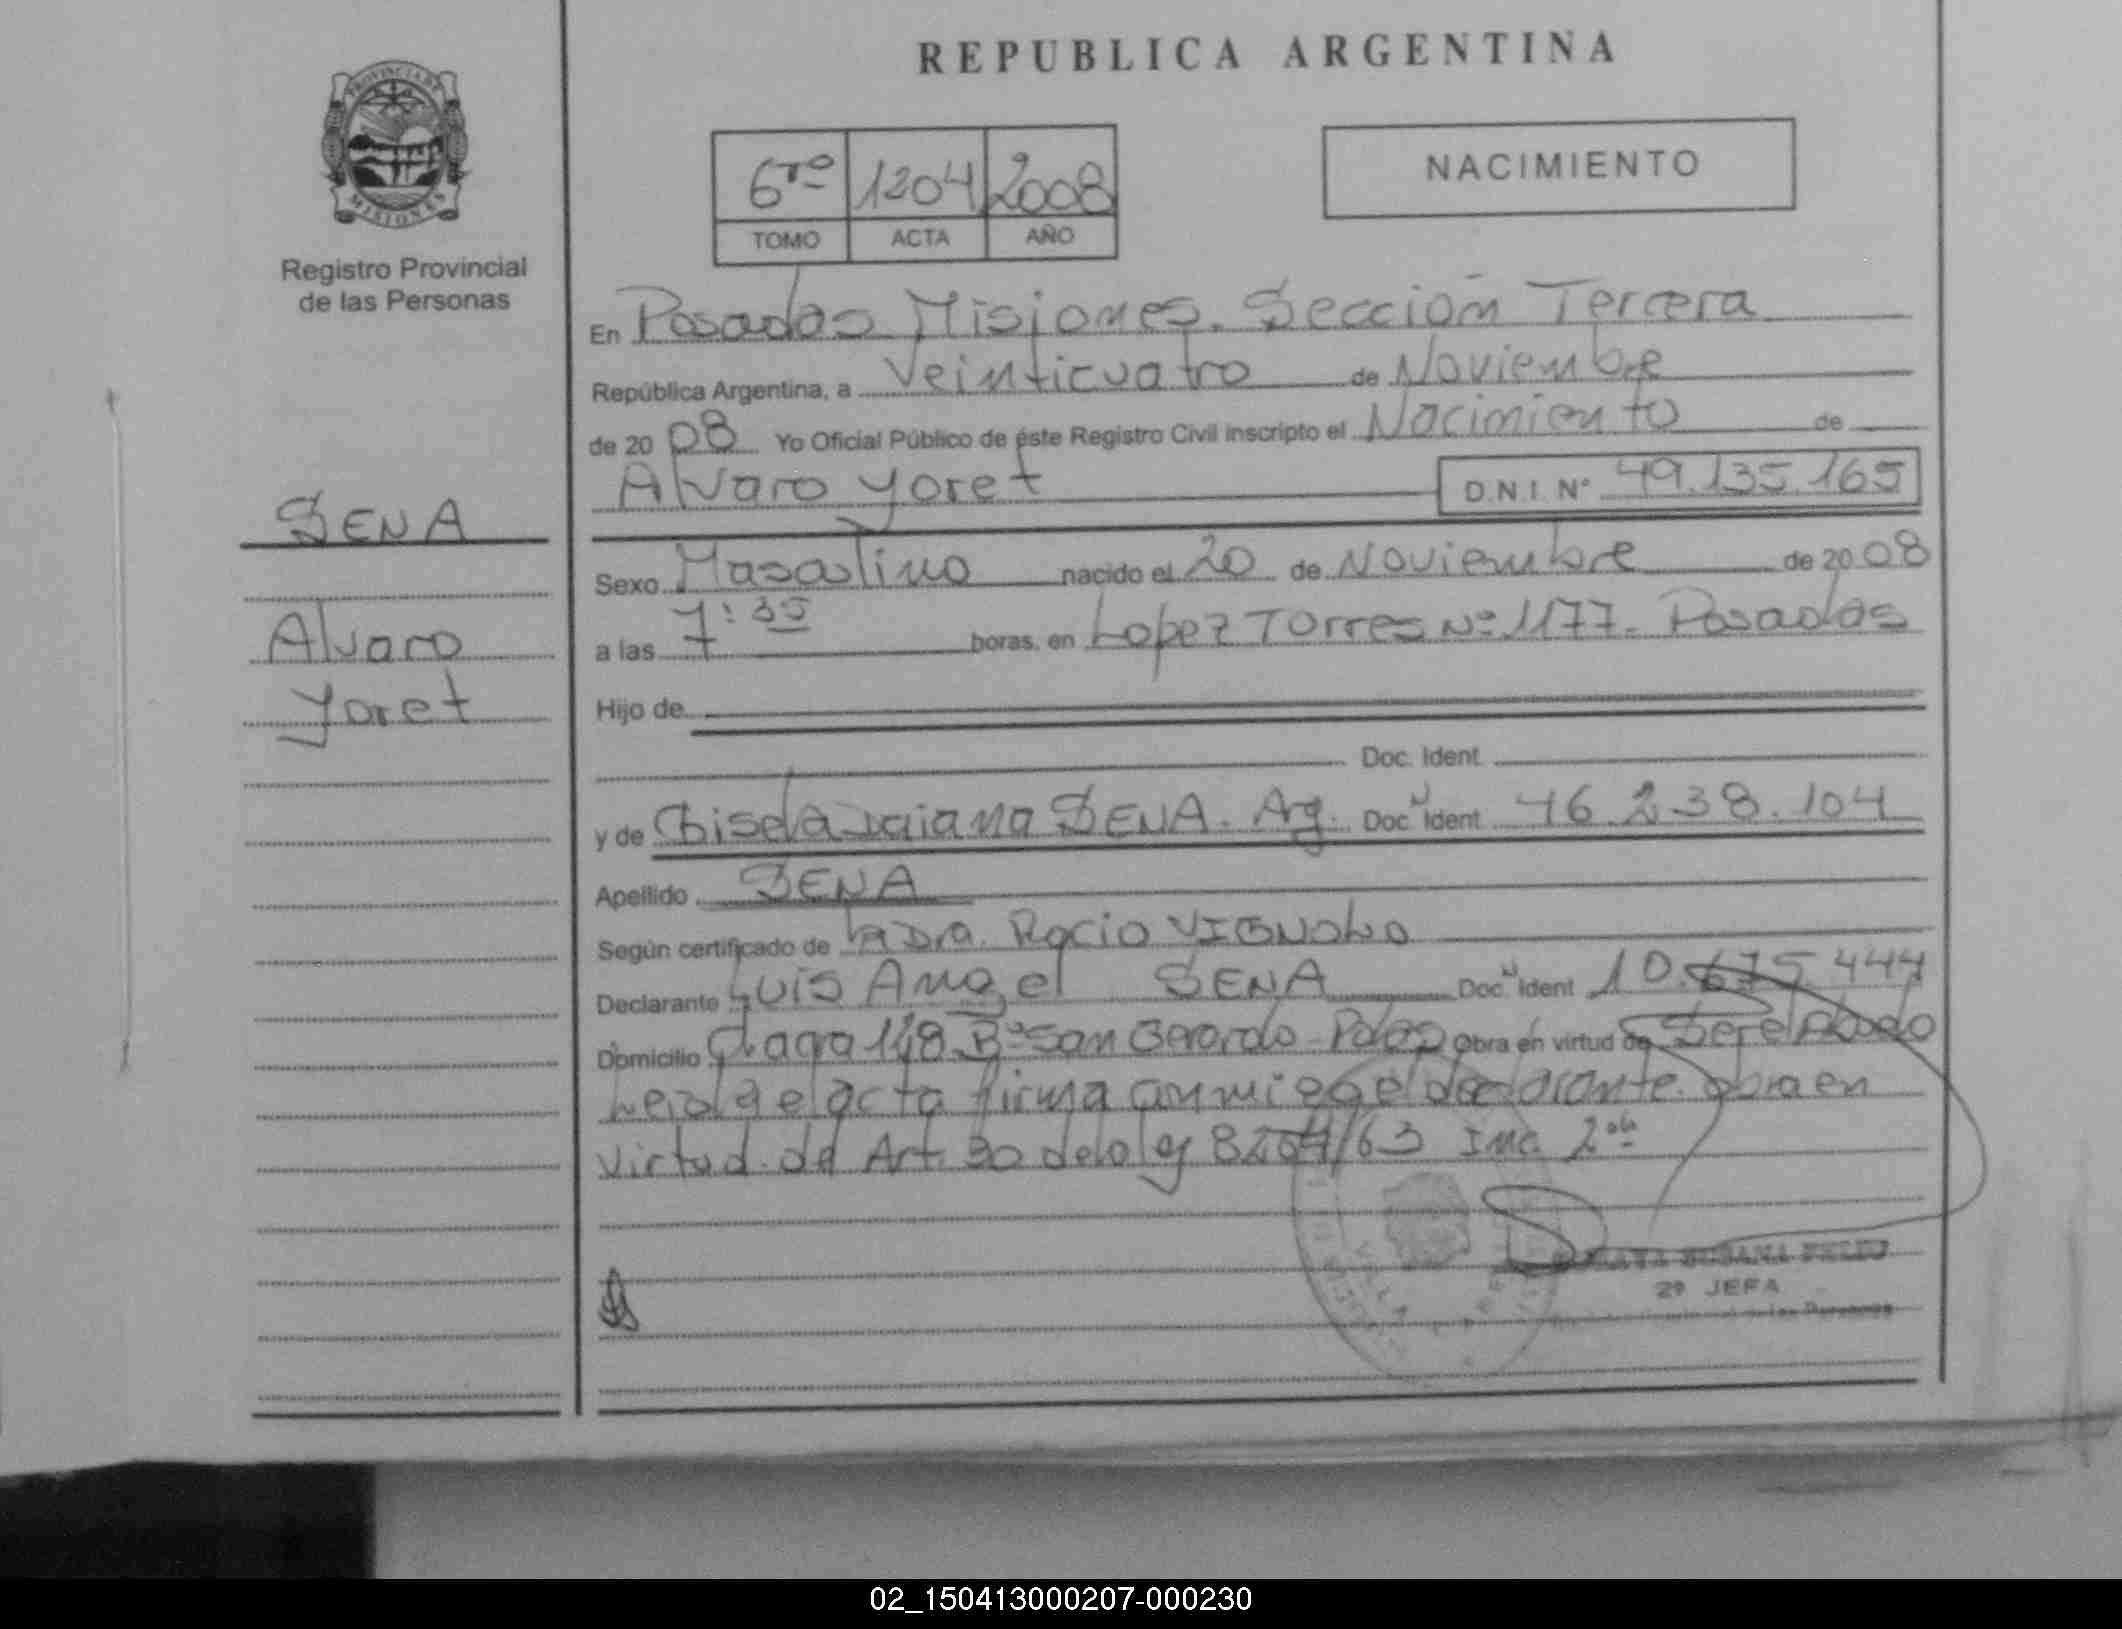 REPUBLICA ARGENTINA
PROVINCIA DE
MISIONES
Registro Provincial
de las Personas
6to 1204 2008
TOMO ACTA AÑO
NACIMIENTO
En Posadas Misiones. Sección Tercera
República Argentina, a Veinticuatro de Noviembre
de 20 08 Yo Oficial Público de éste Registro Civil inscripto el Nacimiento de
Alvaro Yoret D.N.I. Nº 49.135.165
SENA
Alvaro
Yoret
Sexo Masculino nacido el 20 de Noviembre de 20 08
a las 7:35 horas, en Lopez Torres Nº 1177. Posadas
Hijo de
Doc. Ident.
y de Daiana SENA. Arg. Doc. Ident. 46.238.104
Apellido SENA
Según certificado de la Dra. Rocio
Declarante Luis Angel SENA Doc. Ident 10.675.444
Domicilio 148 Bº San Gerardo - Pdas Obra en virtud de Ser el Abuelo
el acta firma conmigo el declarante. obra en
virtud del Art. 30 de la ley 8204/63 Inc. 2
SUSANA
2º JEFA
de las Personas
02_150413000207-000230